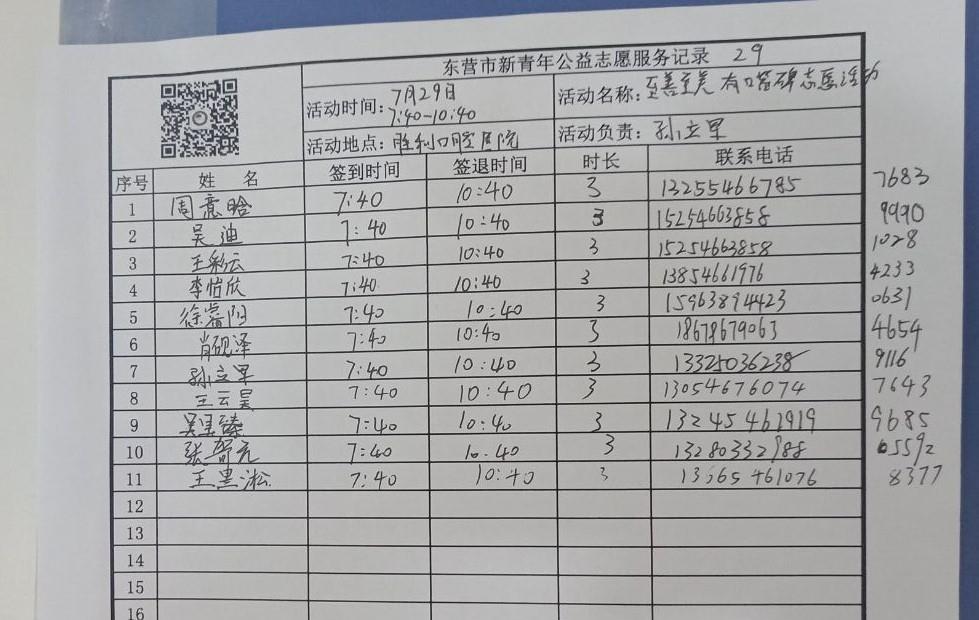 东营市新青年公益志愿服务记录 29
活动时间：7月29日 7:40-10:40 活动名称：至善至美 有口皆碑志愿活动
活动地点：胜利口腔医院 活动负责：孙立军
序号 姓 名 签到时间 签退时间 时长 联系电话
1 周意晗 7:40 10:40 3 13255466785 7683
2 吴迪 7:40 10:40 3 15254663858 9990
3 王彩云 7:40 10:40 3 15254663858 1028
4 李怡欣 7:40 10:40 3 13854661976 4233
5 徐 阳 7:40 10:40 3 15963894423 0631
6 肖砚泽 7:40 10:40 3 18678679063 4654
7 孙立军 7:40 10:40 3 13325036238 9116
8 王云昊 7:40 10:40 3 13054676074 7643
9 吴 臻 7:40 10:40 3 13245461919 9685
10 张智元 7:40 10.40 3 13280332988 05592
11 王墨淞 7:40 10:40 3 13665461076 8377
12
13
14
15
16